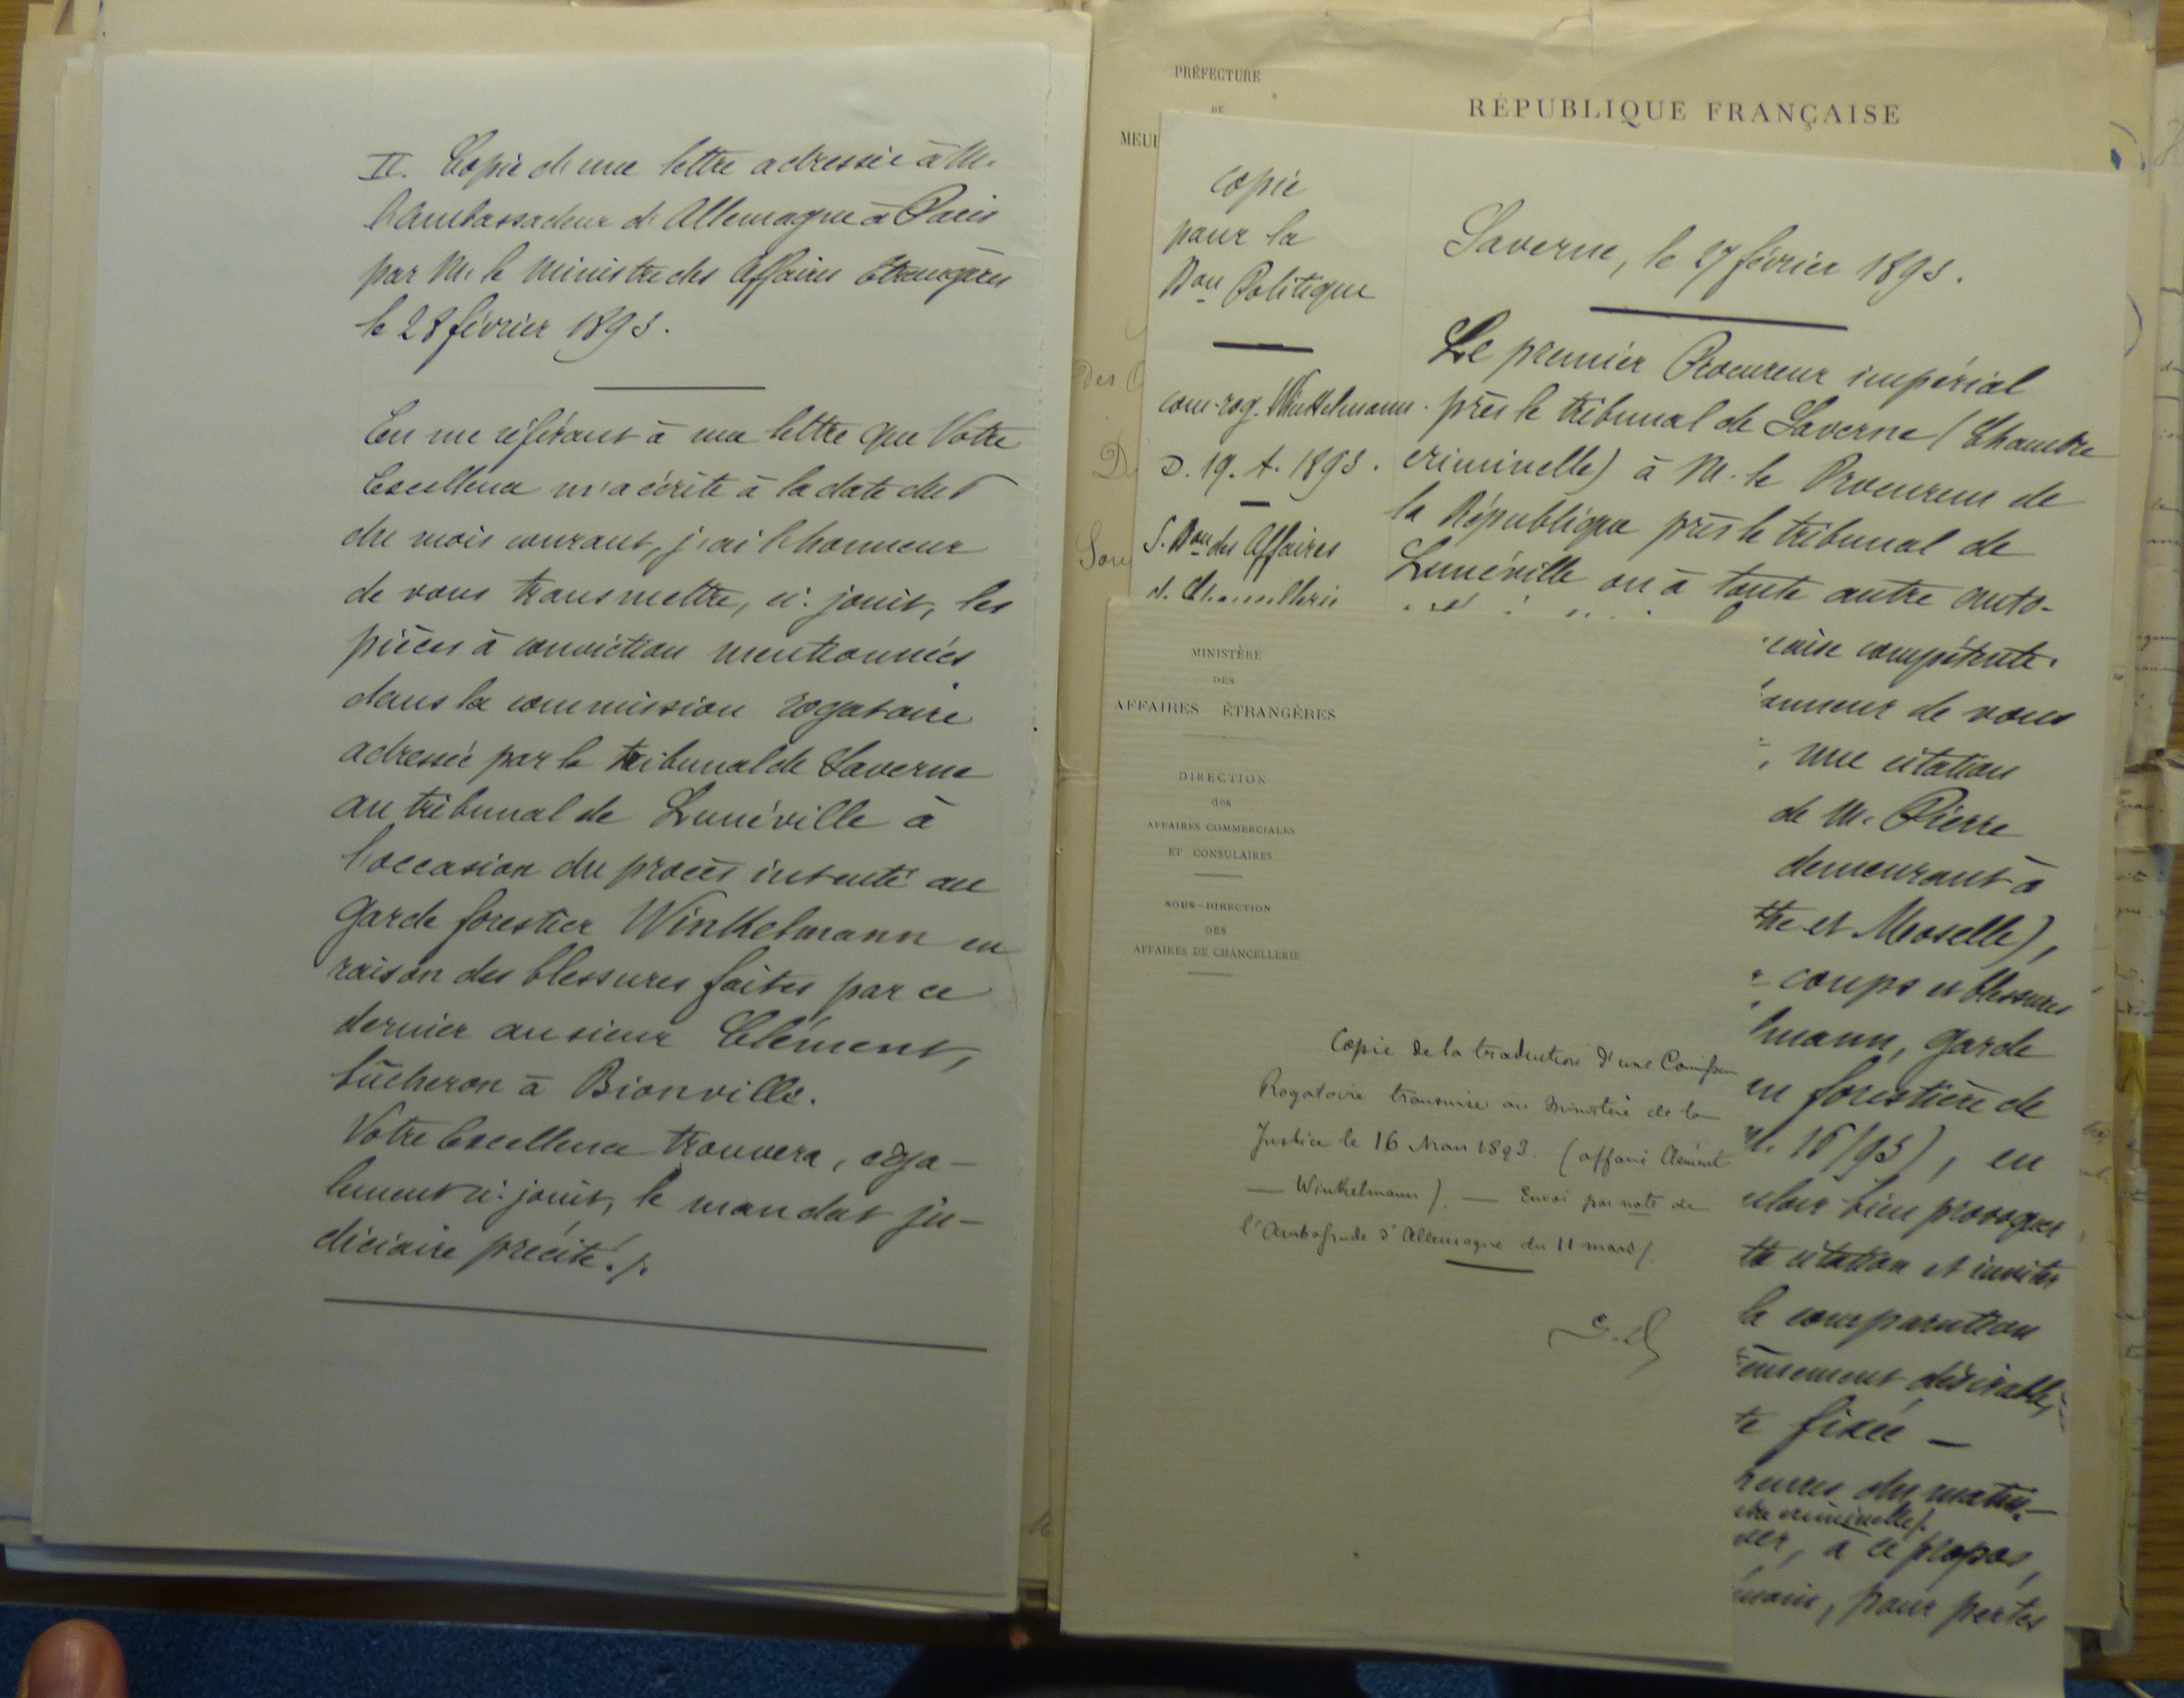 II. Copie d'une lettre adressée à M.
l'Ambassadeur d'Allemagne à Paris
par M. le Ministre des Affaires Etrangères
le 28 février 1893.
En me référant à une lettre que Votre
Excellence m'a écrite à la date du
du mois courant, j'ai l'honneur
de vous transmettre, ci-joint, les
pièces à conviction mentionnées
dans la commission rogatoire
adressée par le tribunal de Saverne
au tribunal de Lunéville à
l'occasion du procès intenté au
garde forestier Winkelmann en
raison des blessures faites par ce
dernier au sieur Clément,
bûcheron à Bionville.
Votre Excellence trouvera, éga-
lement ci-joint, le mandat ju-
diciaire précité./.
PRÉFECTURE
DE
MEUR
RÉPUBLIQUE FRANÇAISE
Des
D
Sou
copie
pour la
Don Politique
com. rog. Winkelmann.
D. 19. A. 1893.
S. Don des Affaires
d. Chancellerie
Saverne, le 27 février 1893.
Le premier Procureur impérial
près le tribunal de Saverne (Chambre
criminelle) à M. le Procureur de
la République près le tribunal de
Lunéville ou à toute autre auto-
çaise compétente.
onneur de vous
, une citation
de M. Pierre
demeurant à
the et Moselle),
coups et blessures
lmann, garde
on forestière de
16/93), en
uloir bien provoquer
tte citation et inviter
la comparution
désirable,
te fixée —
heures du matin —
bre criminelle).
der, à ce propos,
moin, pour pertes
MINISTÈRE
DES
AFFAIRES ÉTRANGÈRES
DIRECTION
des
AFFAIRES COMMERCIALES
ET CONSULAIRES
SOUS-DIRECTION
DES
AFFAIRES DE CHANCELLERIE
Copie de la traduction d'une Comission
Rogatoire transmise au Ministère de la
Justice le 16 Mars 1893. (affaire Clément
— Winkelmann). — Envoi par note de
l'Ambassade d'Allemagne du 11 mars/.